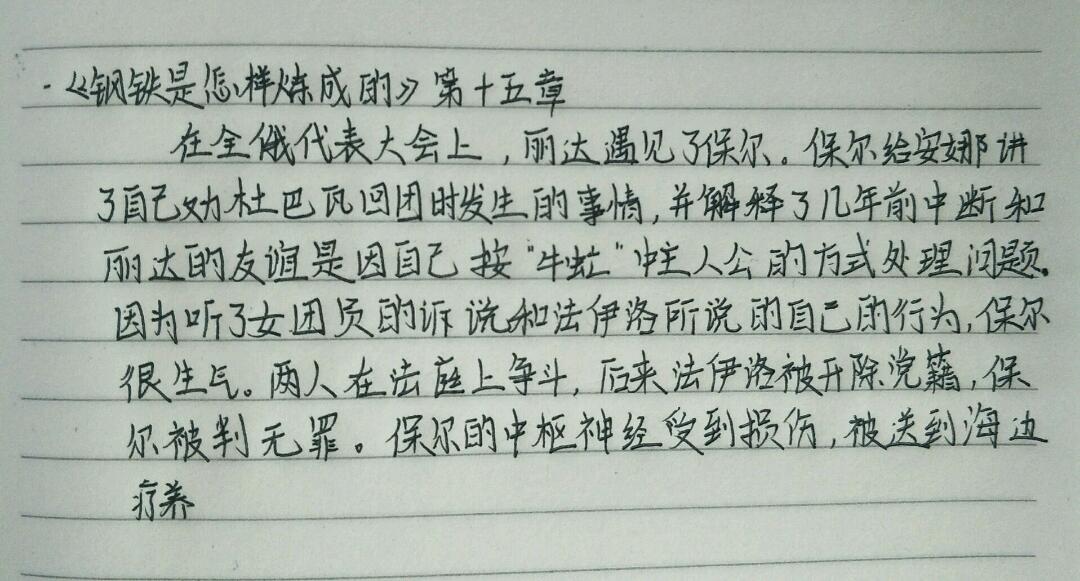 ·《钢铁是怎样炼成的》第十五章
在全俄代表大会上，丽达遇见了保尔。保尔给安娜讲
了自己劝杜巴瓦回团时发生的事情，并解释了几年前中断和
丽达的友谊是因自己按“牛虻”中主人公的方式处理问题。
因为听了女团员的诉说和法伊洛所说的自己的行为，保尔
很生气。两人在法庭上争斗，后来法伊洛被开除党籍，保
尔被判无罪。保尔的中枢神经受到损伤，被送到海边
疗养